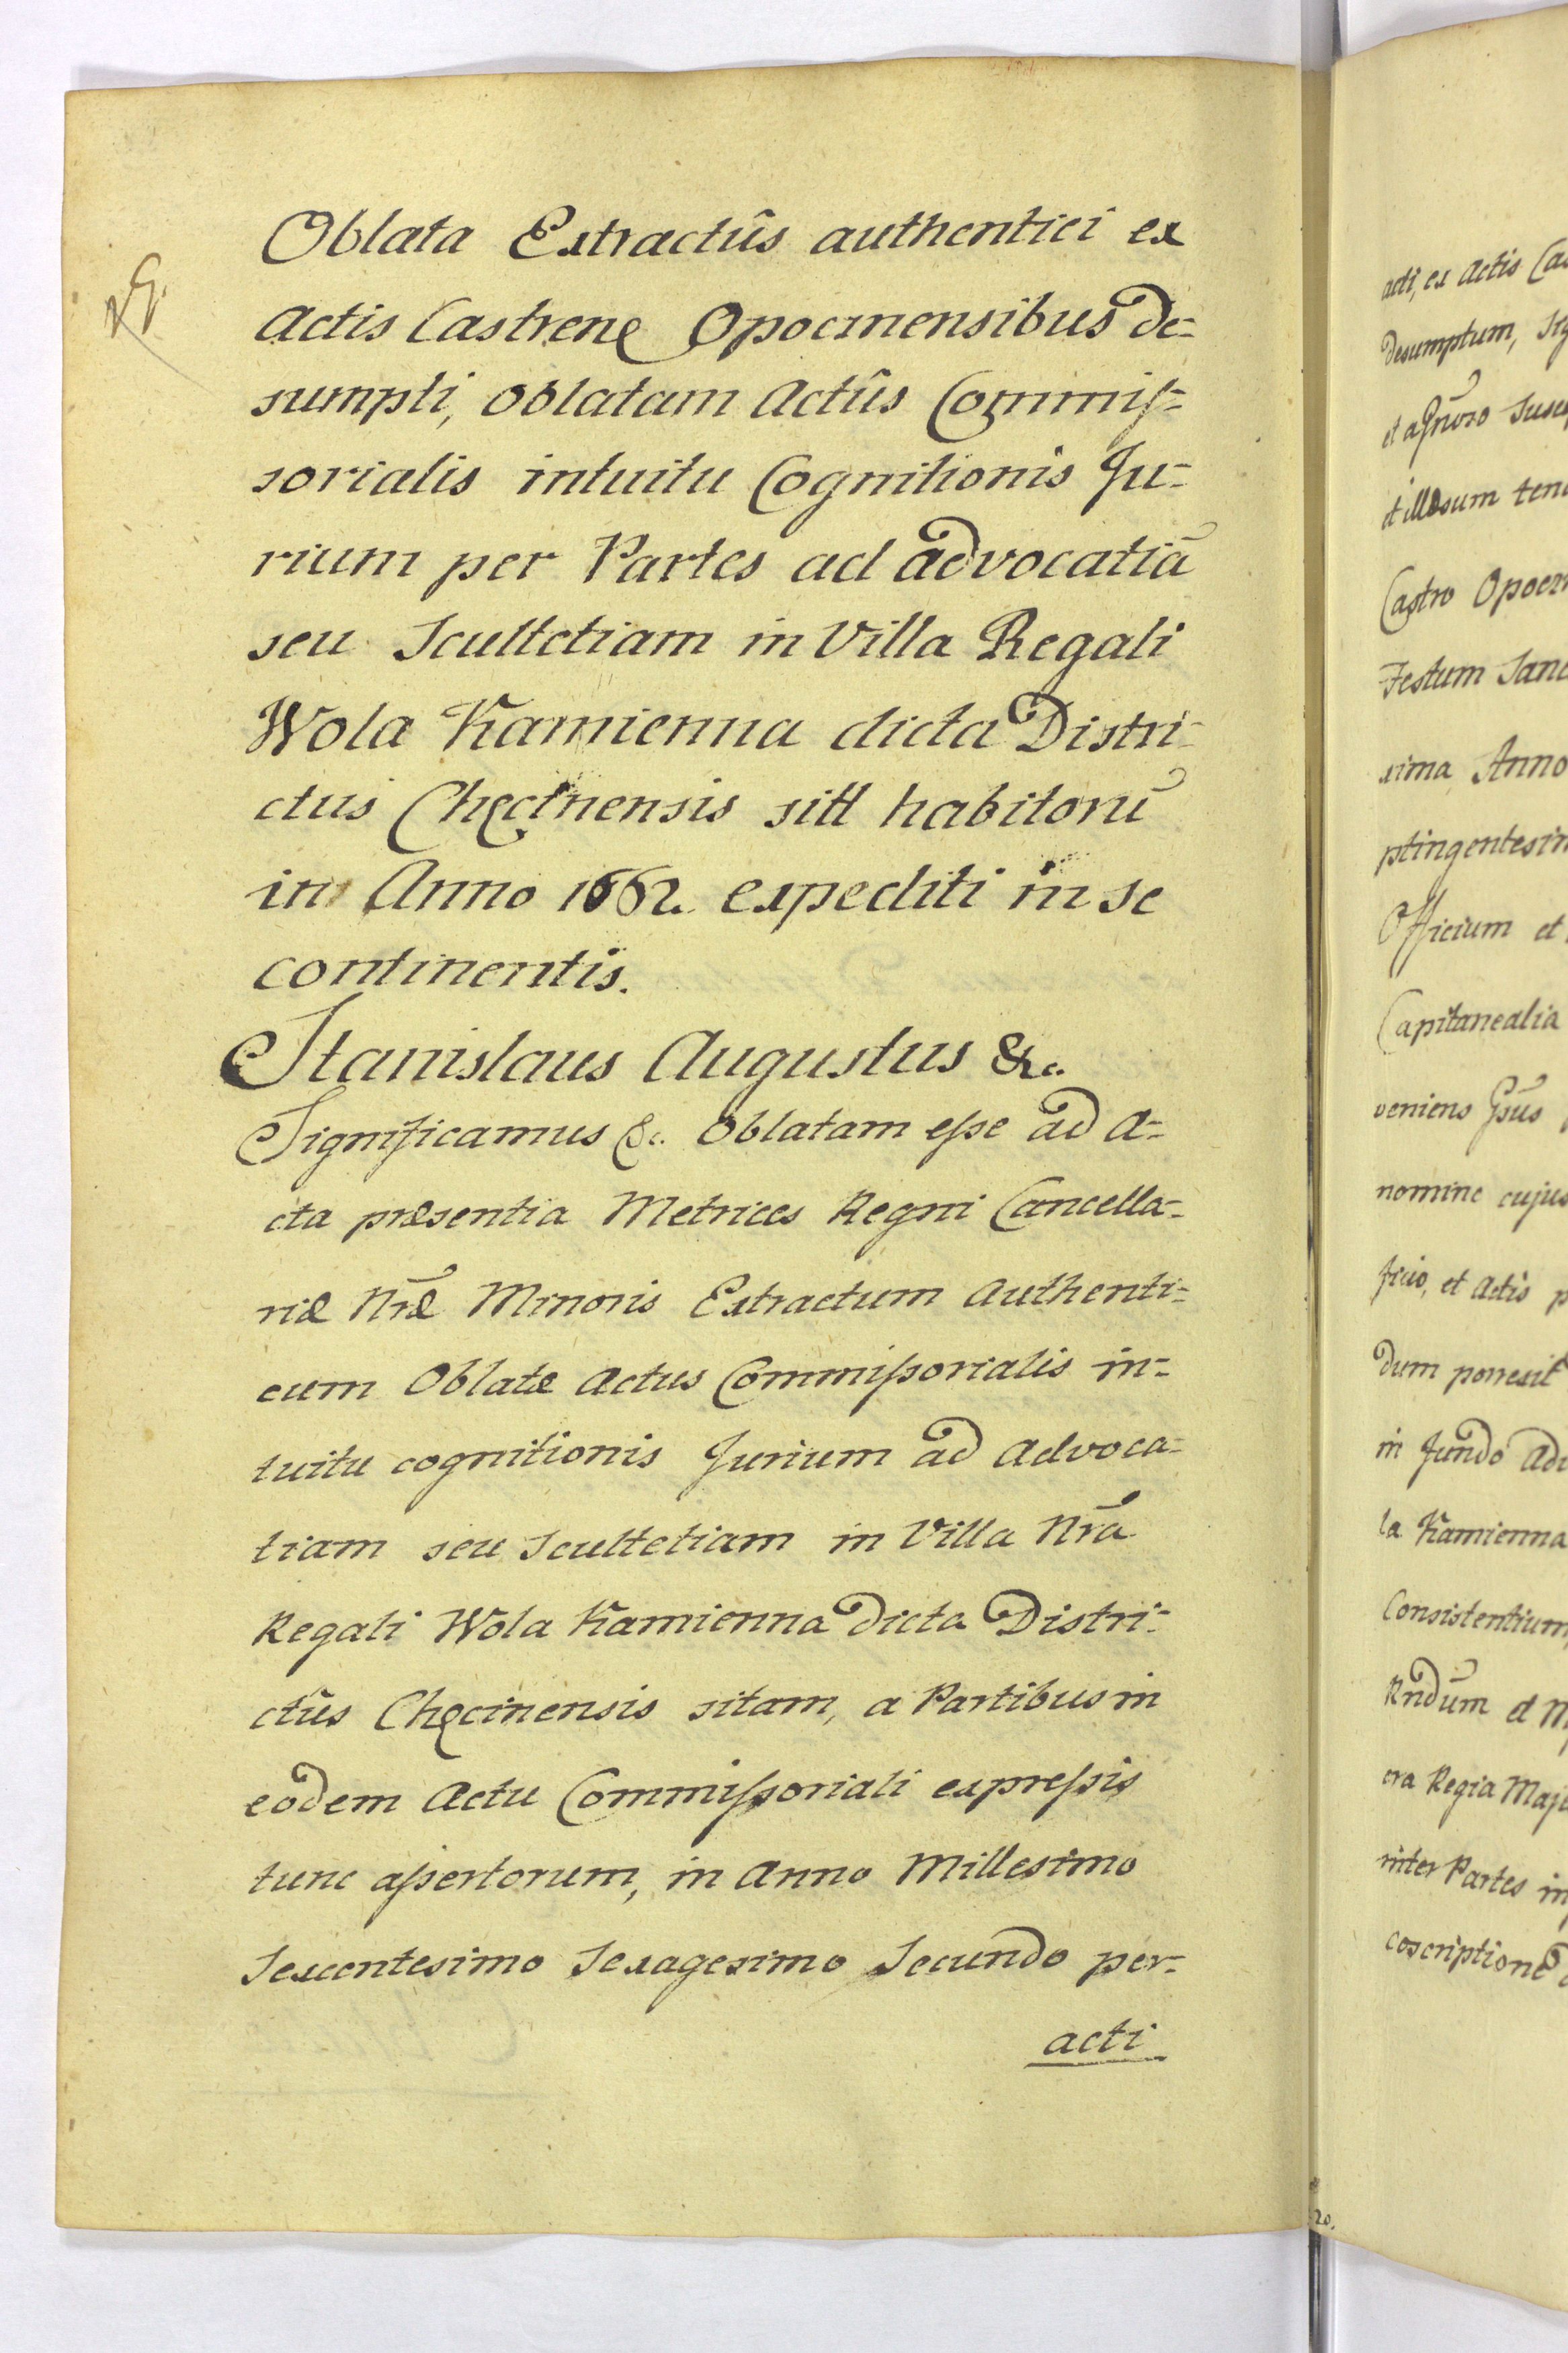 Oblata Extractûs authentici ex
Actis Castrenę Opocznensibus de=
sumpti, Oblatam Actûs Commiſ=
sorialis intuitu Cognitionis Ju=
rium per Partes ad advocatiā
seu Scultetiam in Villa Regali
Wola Kamienna dicta Distri=
ctus Chęcinensis sitt habitorū
in Anno 1662. expediti in se
continentis.
Stanislaus Augustus &c.
Significamus &c. Oblatam eſse ad A=
cta præsentia Metrices Regni Cancella=
riæ Nræ Minoris Extractum Authenti=
cum Oblatæ Actus Commiſsorialis in=
tuitu cognitionis Jurium ad Advoca=
tiam seu Scultetiam in Villa Nrā
Regali Wola Kamienna dicta Distri=
ctûs Chęcinensis sitam, a Partibus in
eodem Actu Commiſsoriali expreſsis
tunc aſsertorum, in Anno Millesimo
Sexcentesimo Sexagesimo Secundo per=
acti
acti, ex Actis Ca
desumptum,
et a Gnroso Susc
et illæsum ten
Castro Opocz
Festum Sanc
xima Anno
ptingentesim
Officium et
Capitanealia
veniens Gsūs
nomine cujus
ficio, et Actis p
dum porrexit
in fundo Adv
la Kamienna
Consistentium
Rndūm et M
cra Regia Maje
inter Partes in
coscriptione
20.